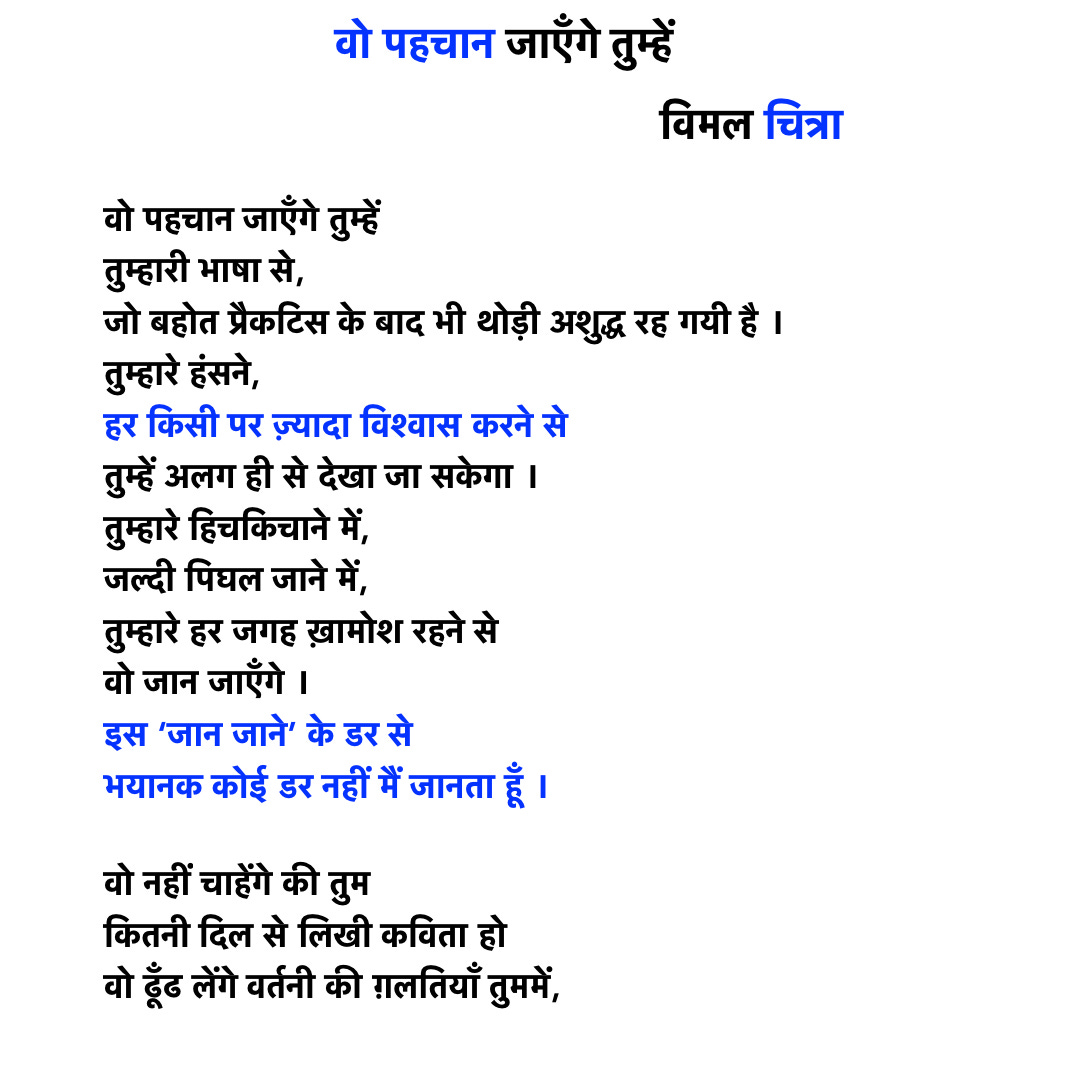 वो पहचान जाएँगे तुम्हें
विमल चित्रा
वो पहचान जाएँगे तुम्हें
तुम्हारी भाषा से,
जो बहोत प्रैकटिस के बाद भी थोड़ी अशुद्ध रह गयी है ।
तुम्हारे हंसने,
हर किसी पर ज़्यादा विश्वास करने से
तुम्हें अलग ही से देखा जा सकेगा ।
तुम्हारे हिचकिचाने में,
जल्दी पिघल जाने में,
तुम्हारे हर जगह ख़ामोश रहने से
वो जान जाएँगे ।
इस ‘जान जाने’ के डर से
भयानक कोई डर नहीं मैं जानता हूँ ।
वो नहीं चाहेंगे की तुम
कितनी दिल से लिखी कविता हो
वो ढूँढ लेंगे वर्तनी की ग़लतियाँ तुममें,